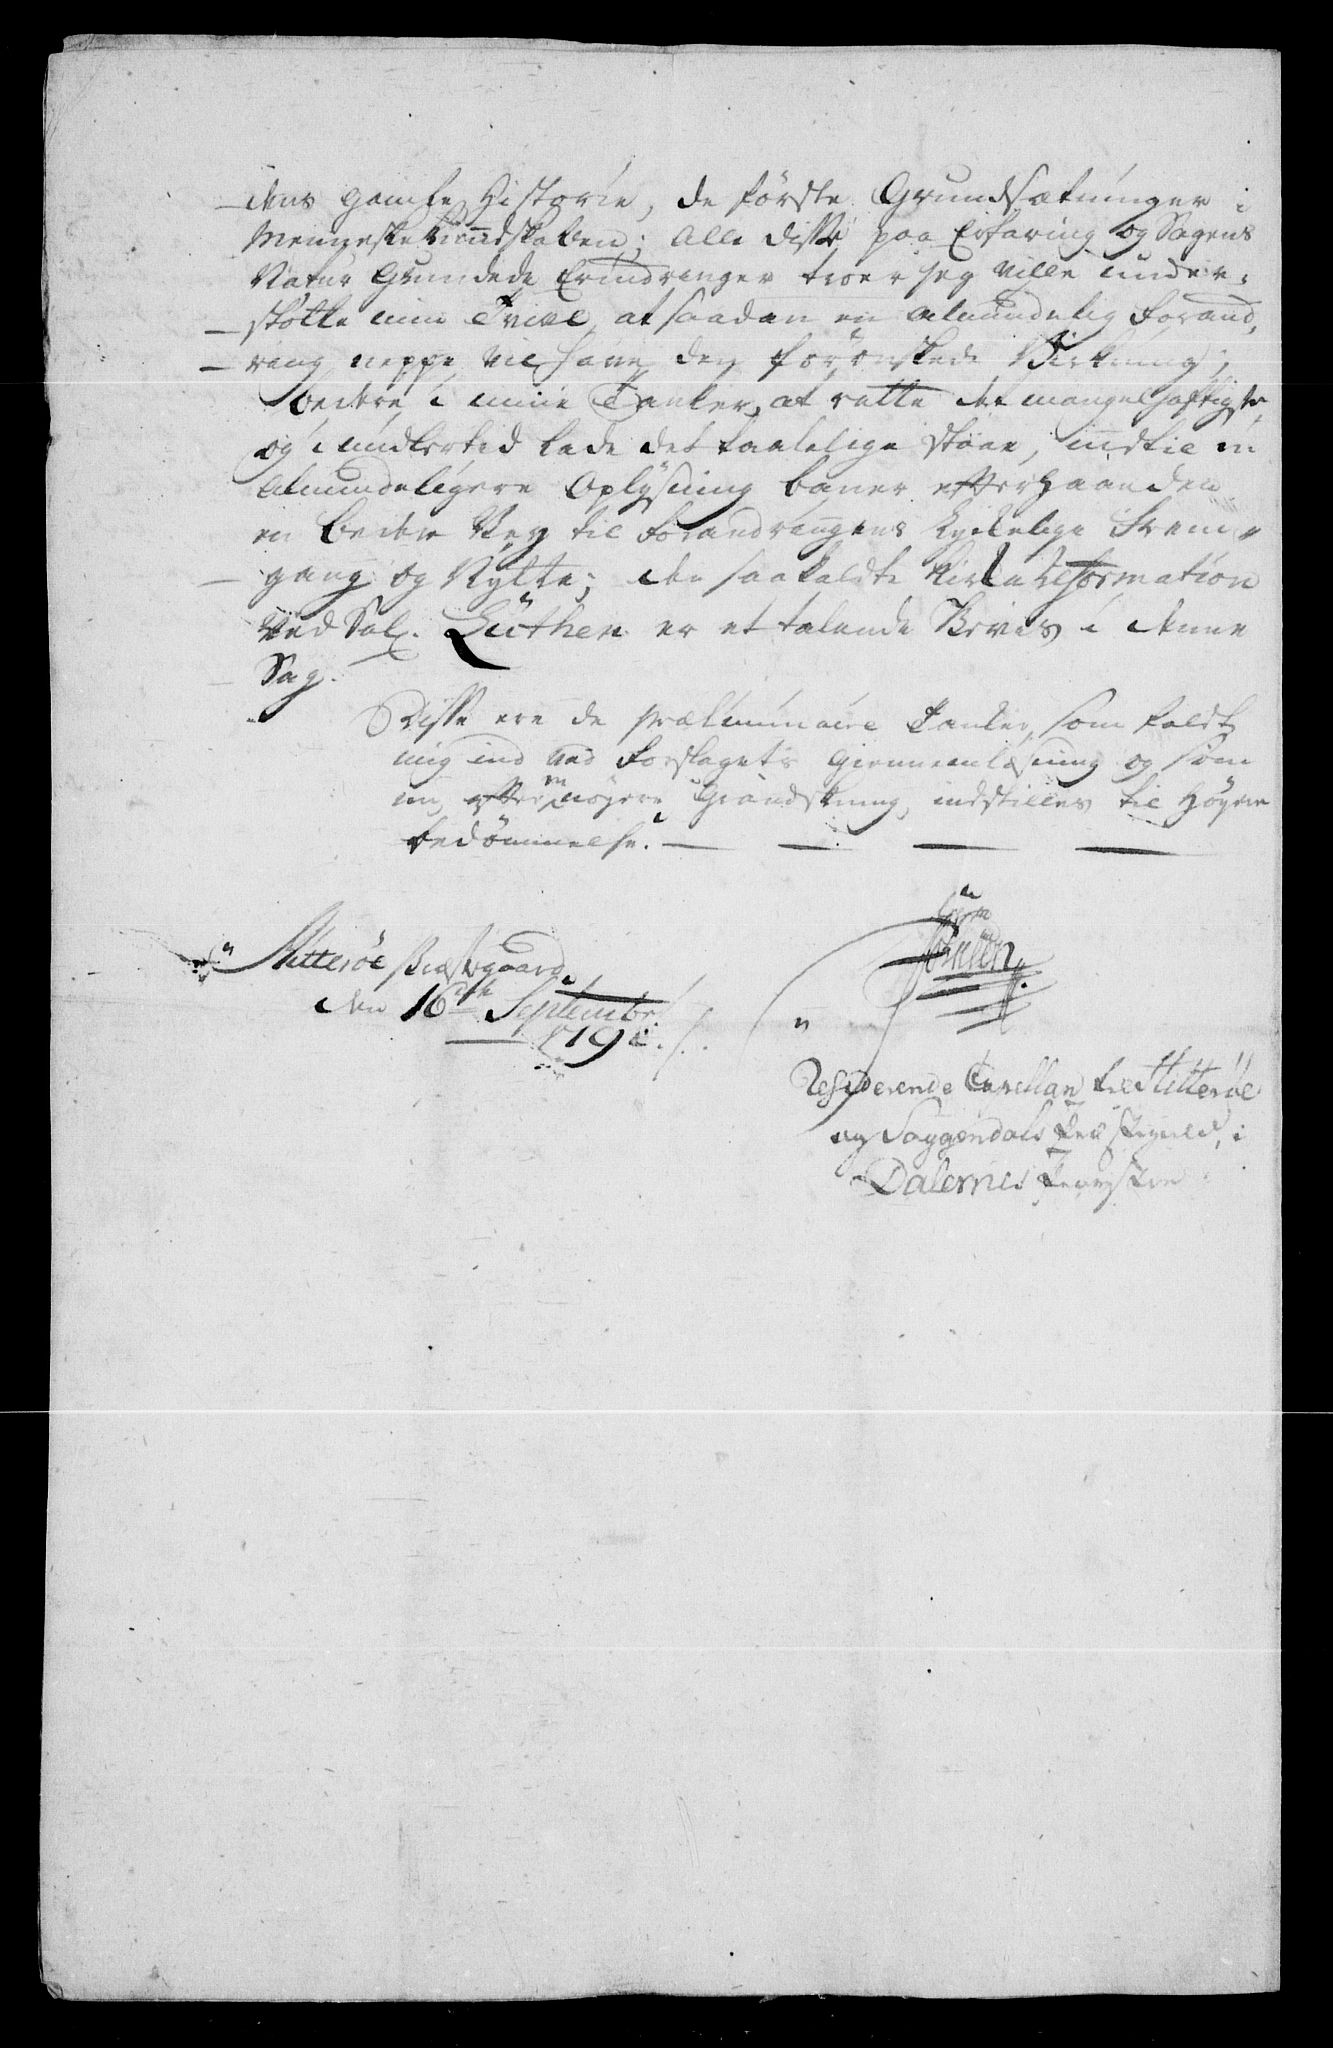 dens gamle Historie, de første Grundsætninger i
Menneskekundskaben; Alle disse paa Erfaring og Sagens
Natur Grundede Erindringer troer jeg ville under-
støtte min Tvivl, at saadan en almindelig Forand-
ring neppe vil have den forønskede Virkning;
bedre i mine Tanker, at rette det mangelhaftigste,
og imidlertid lade det taalelige staae, indtil en
almindeligere Oplysning baner efterhaanden
en bedre Vey til Forandringens Lykkelige Frem-
gang og Nytte; den saakaldte Kirke Reformation
ved Sal. Luther er et talende Beviis i denne
Sag.
Disse ere de præliminaire Tanker, som faldt
mig ind ved Forslagets Giennemlæsning og som
nu, efter en nøyere Grandskning, indstilles til Høyere
bedømmelse. — — — —
Hitterøe Præstegaard
den 16de Septembr
179
Residerende Capellan til Hitterøe
og Soggendals Præstegield, i
Dalernes Provstie